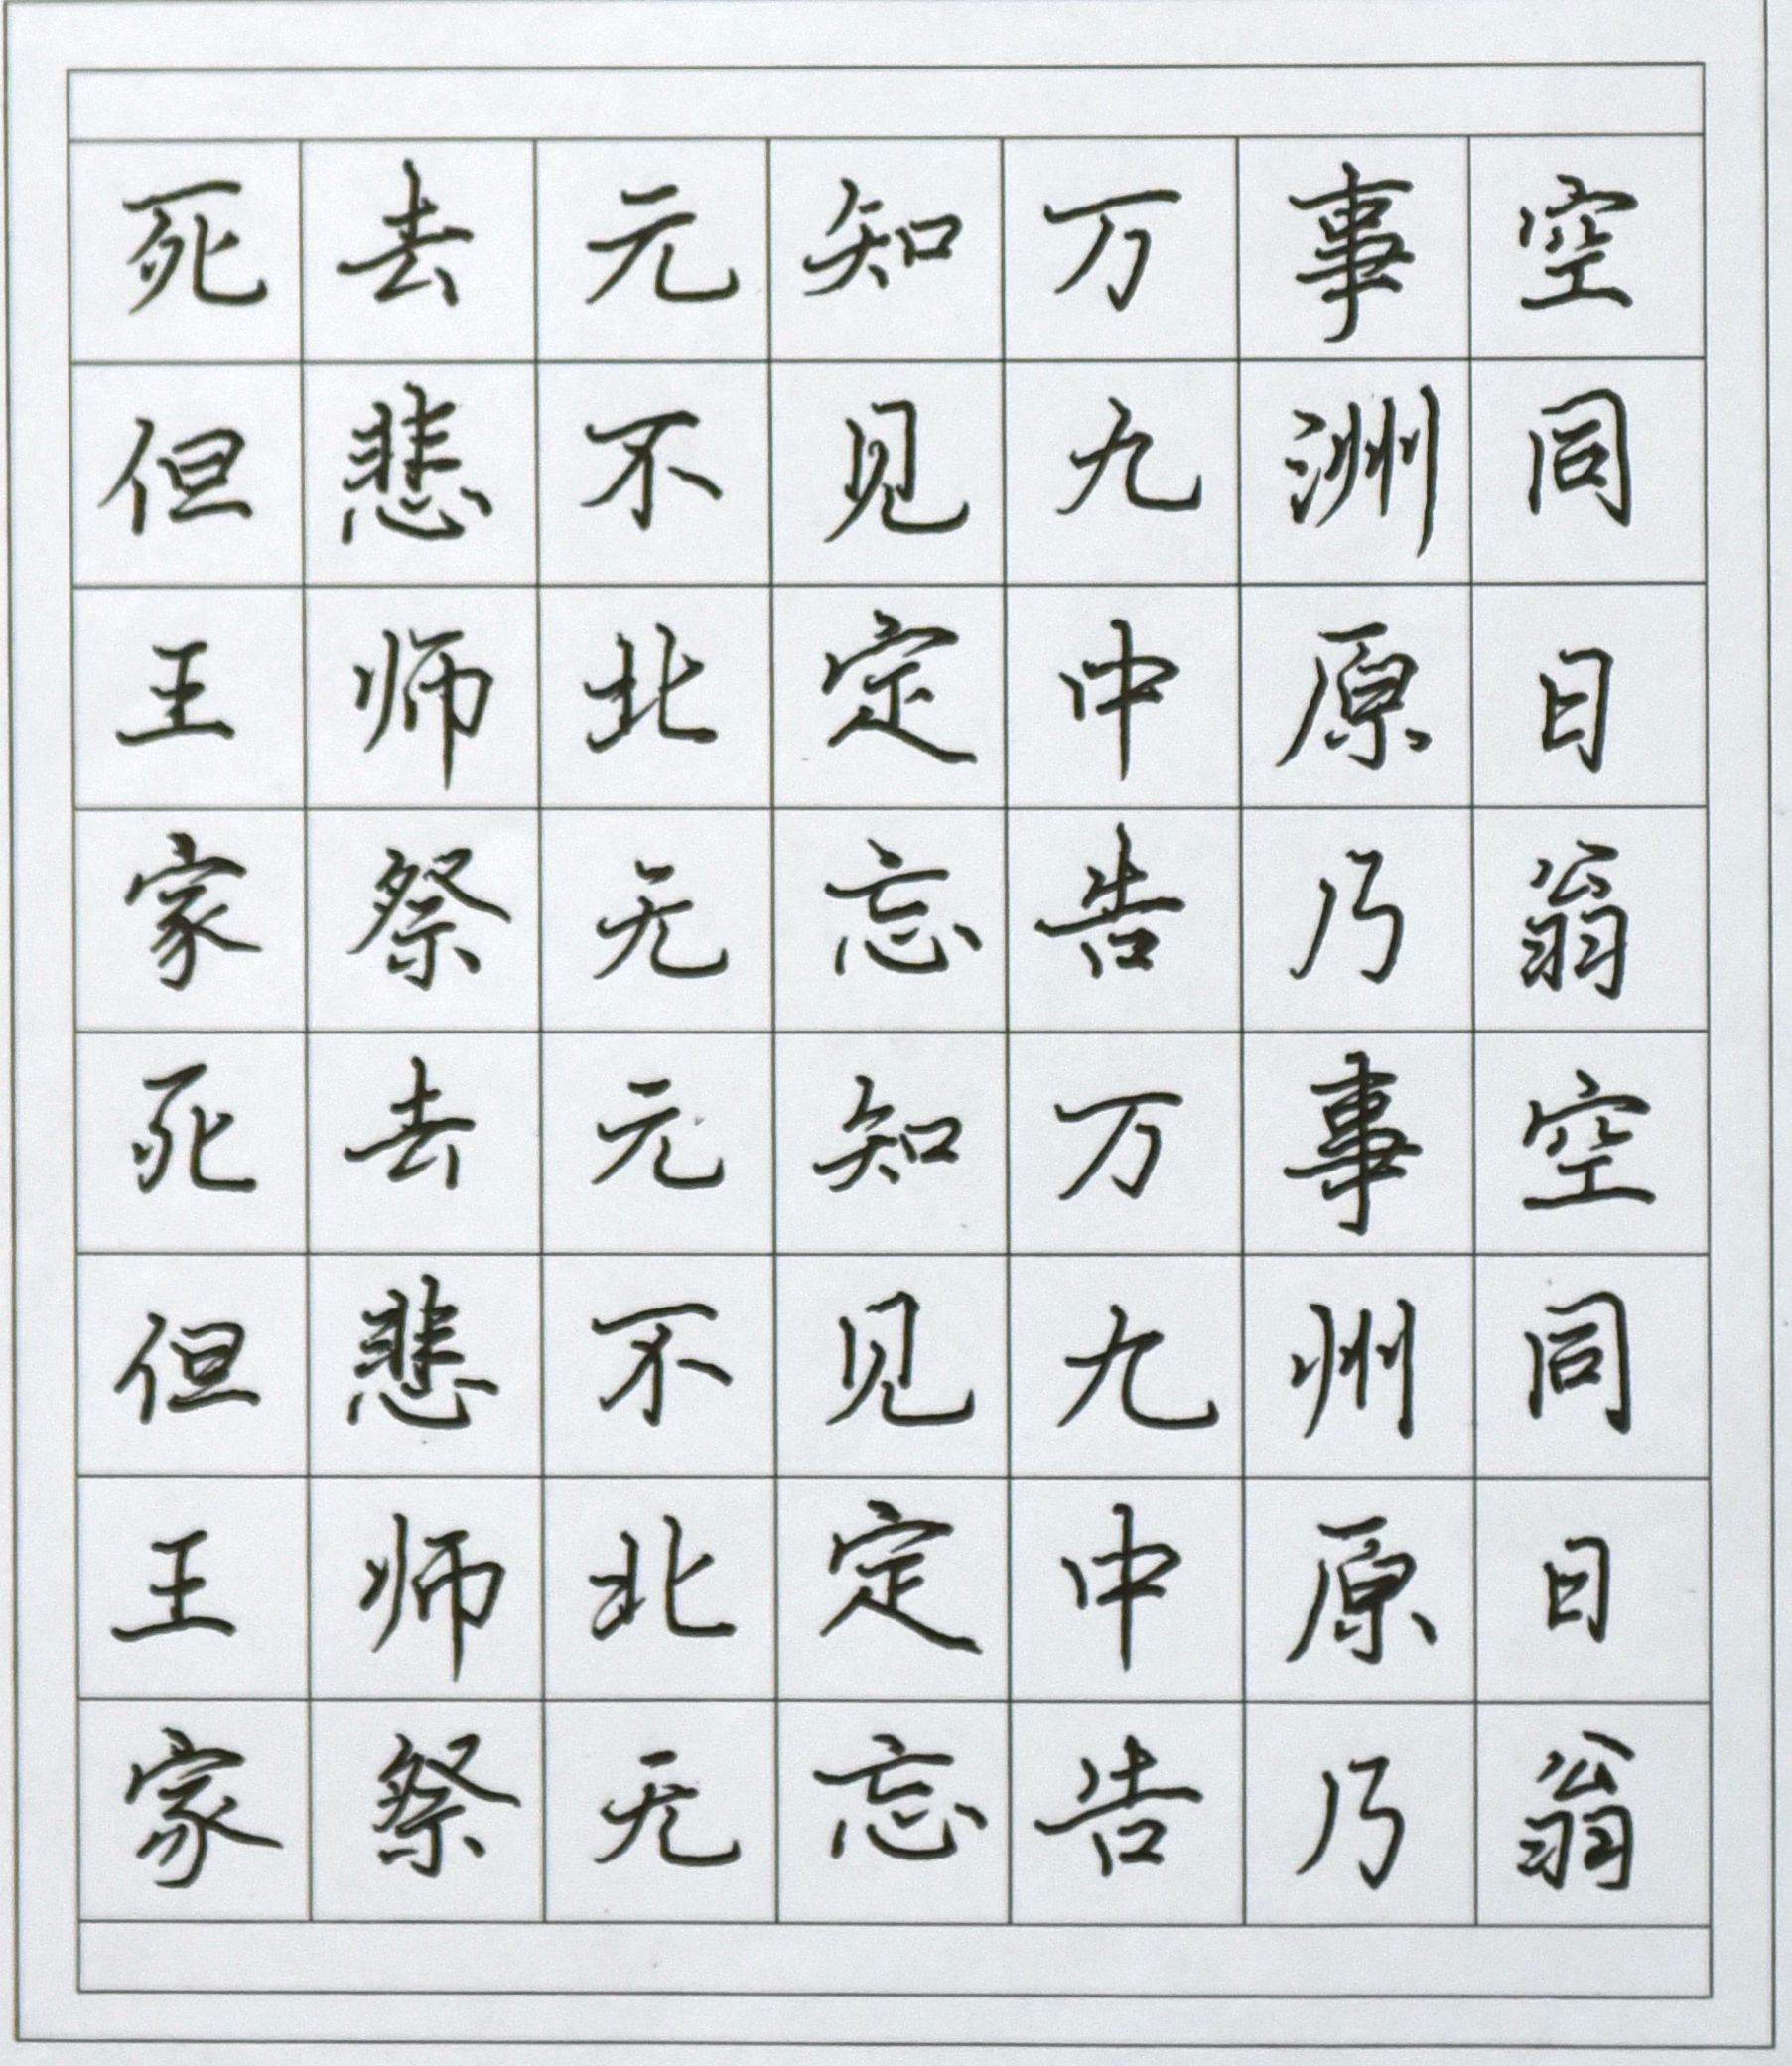 死去元知万事空
但悲不见九洲同
王师北定中原日
家祭无忘告乃翁
死去元知万事空
但悲不见九州同
王师北定中原日
家祭无忘告乃翁